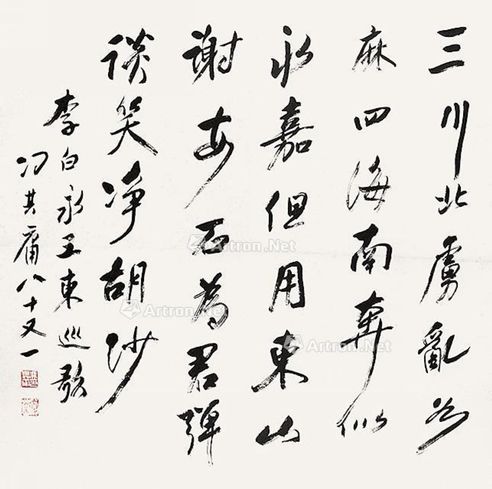 三川北虜亂如
麻四海南奔似
永嘉但用東山
謝安石為君彈
談笑净胡沙
李白永王東巡歌
冯其庸八十又一
Artron.Net
Artron.Net
Artron.Net
Artron.Net